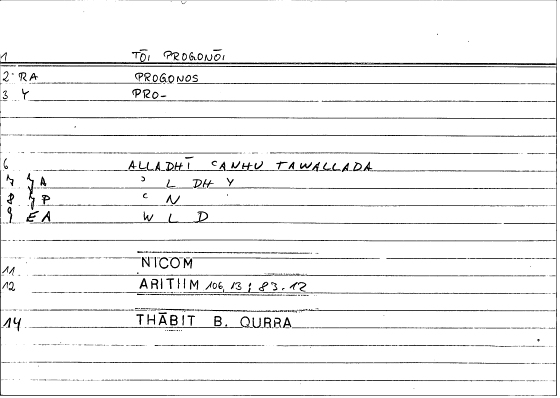 1 TŌI PROGONŌI
2 RA PROGONOS
3 Y PRO-
6 ALLADHĪ ʿANHU TAWALLADA
7 A ʾ L DH Y
8 P ʿ N
9 EA W L D
11 NICOM
12 ARITIIM 106, 13 ; 83.12
14 THĀBIT B. QURRA